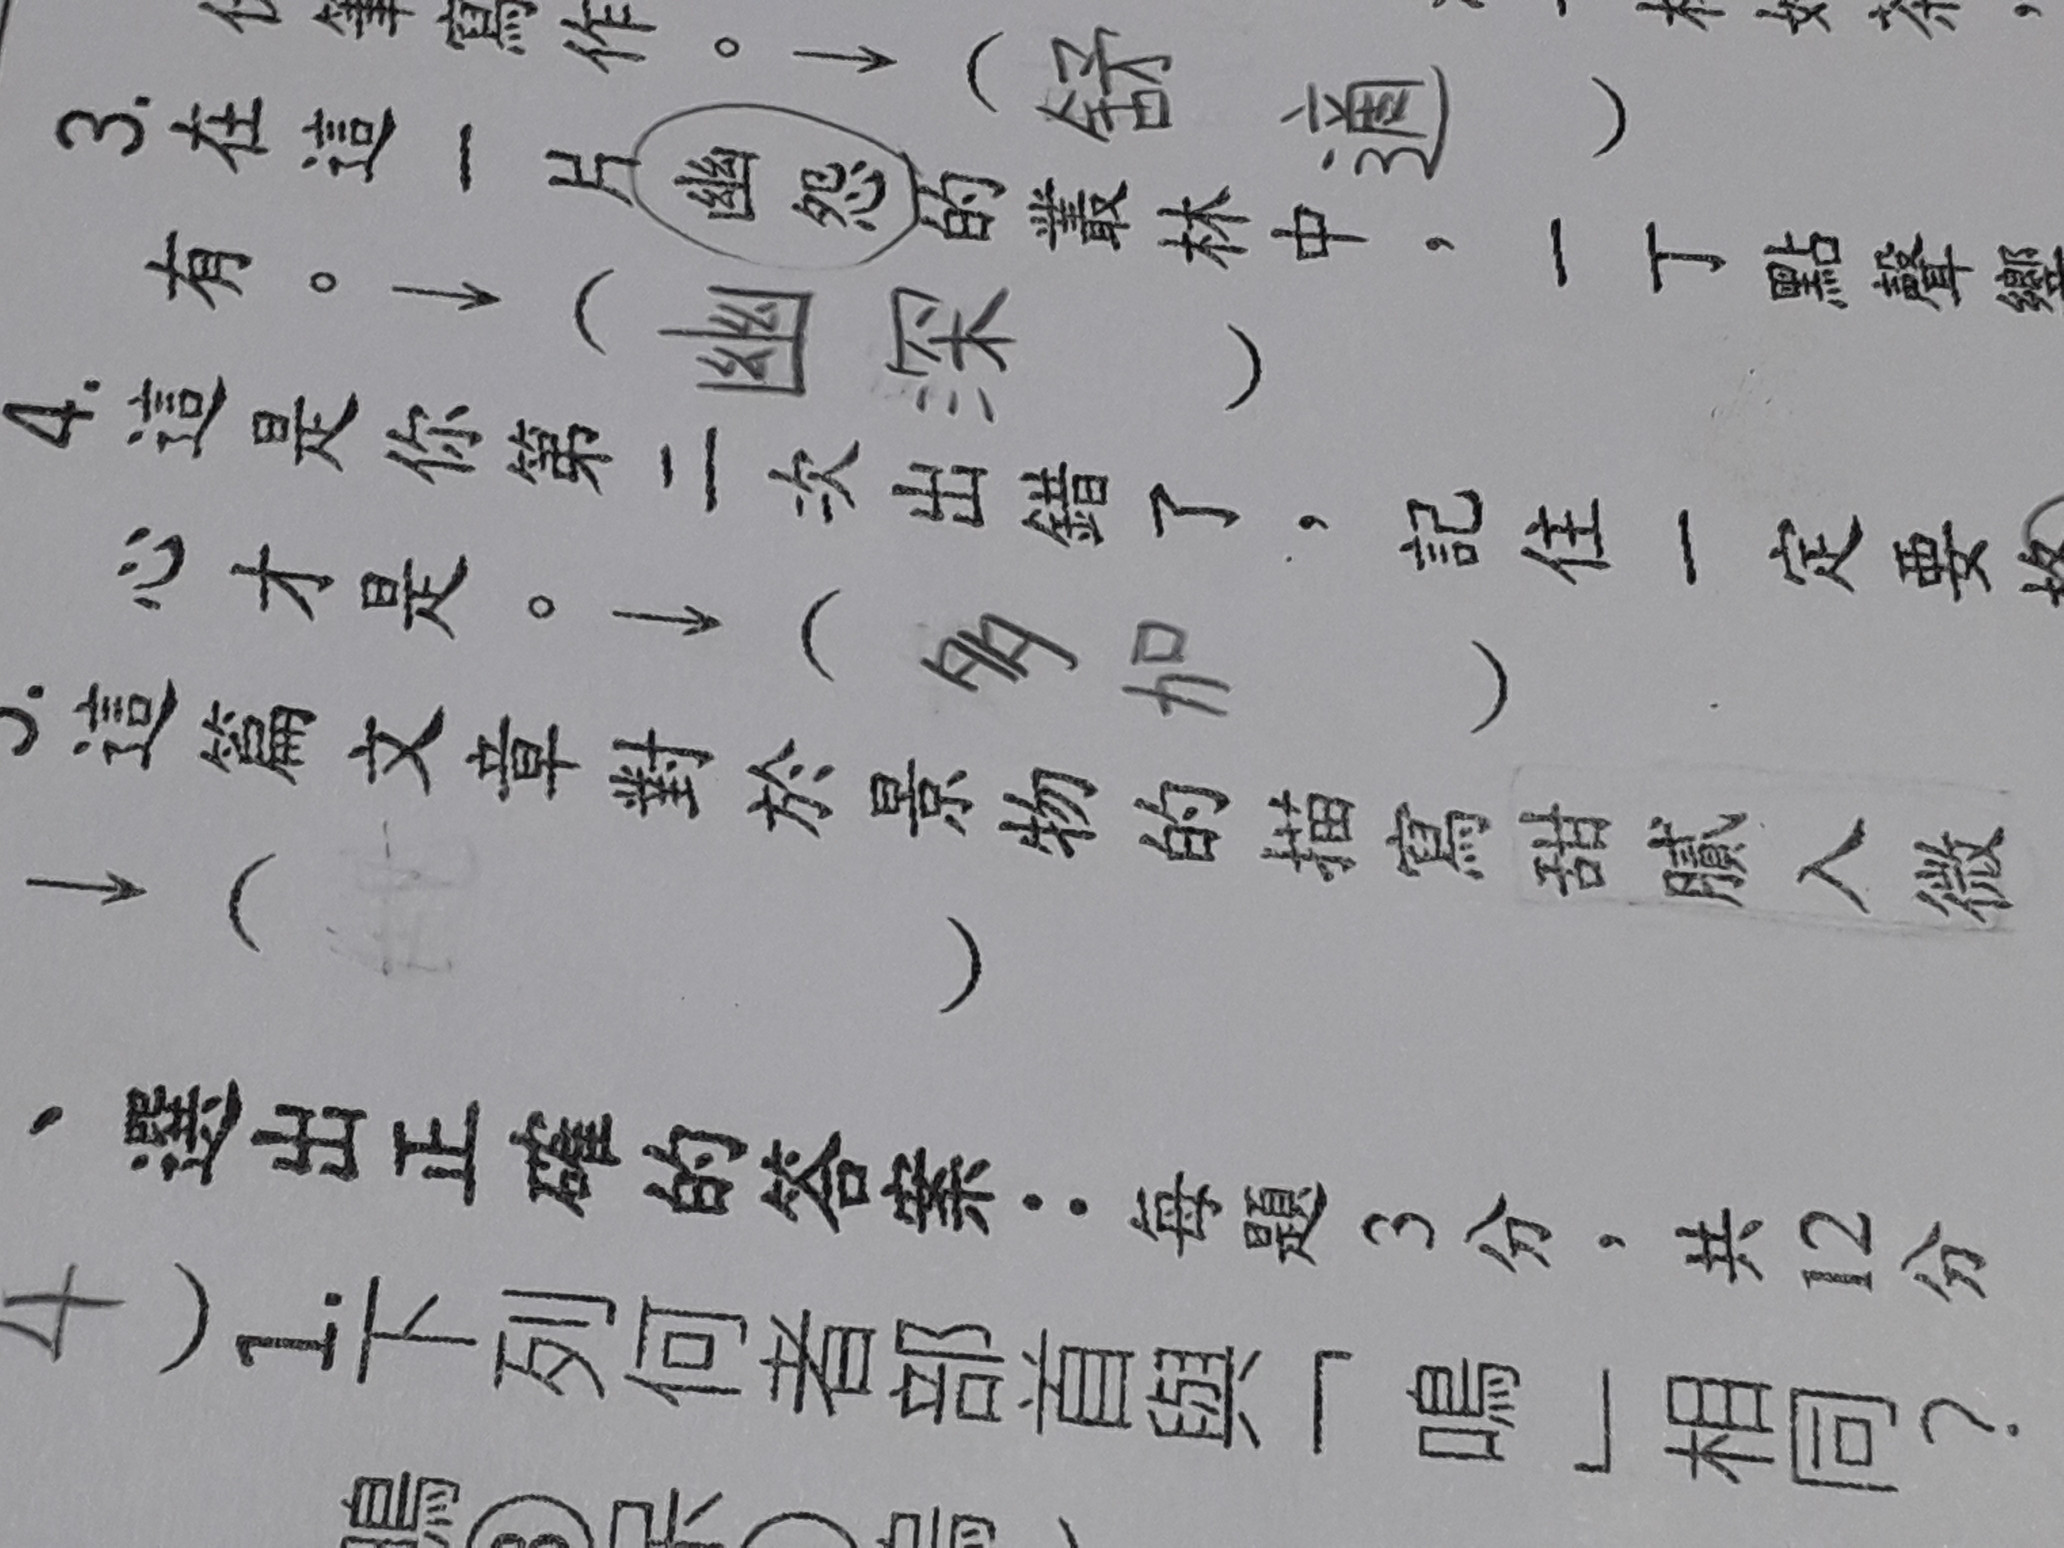 寫作。→(舒適)
3.在這一片幽怨的叢林中,一丁點聲響
有。→(幽深)
4.這是你第二次出錯了,記住一定要
心才是。→(多加)
這篇文章對於景物的描寫甜膩入微
→( )
、選出正確的答案:每題3分,共12分
4)1.下列何者部首與「鳴」相同?